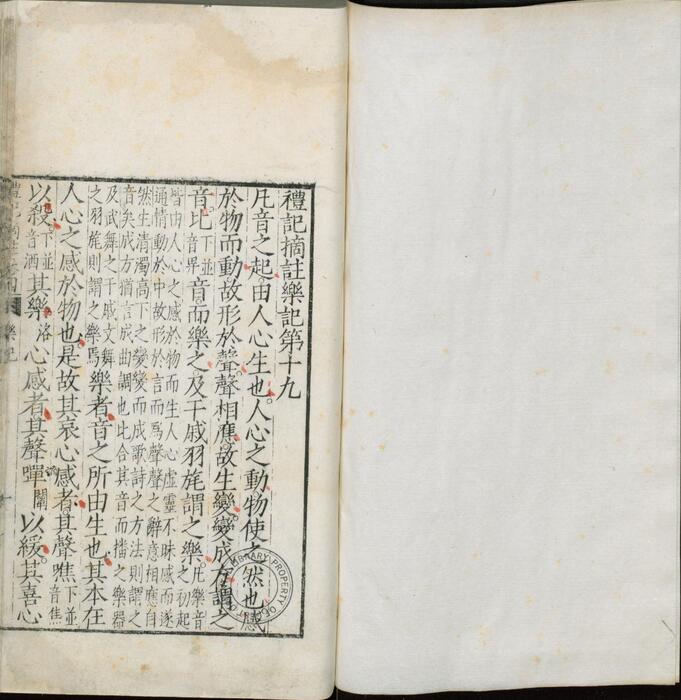 禮記摘註樂記第十九
凡音之起由人心生也人心之動物使之然也感
於物而動故形於聲聲相應故生變變成方謂之
音比下並音界音而樂之及干戚羽旄謂之樂凡樂音之初起
皆由人心之感於物而生人心虛靈不昧感而遂
通情動於中故形於言而爲聲聲之辭意相應自
然生清濁高下之變變而成歌詩之方法則謂之
音矣成方猶言成曲調也比合其音而播之樂器
及武舞之干戚文舞
之羽旄則謂之樂焉樂者音之所由生也其本在
人心之感於物也是故其哀心感者其聲噍下並音焦
以殺下並音洒其樂洛心感者其聲嘽闡以緩其喜心
禮記摘註 四 樂記 一
LIBRARY PROPERTY